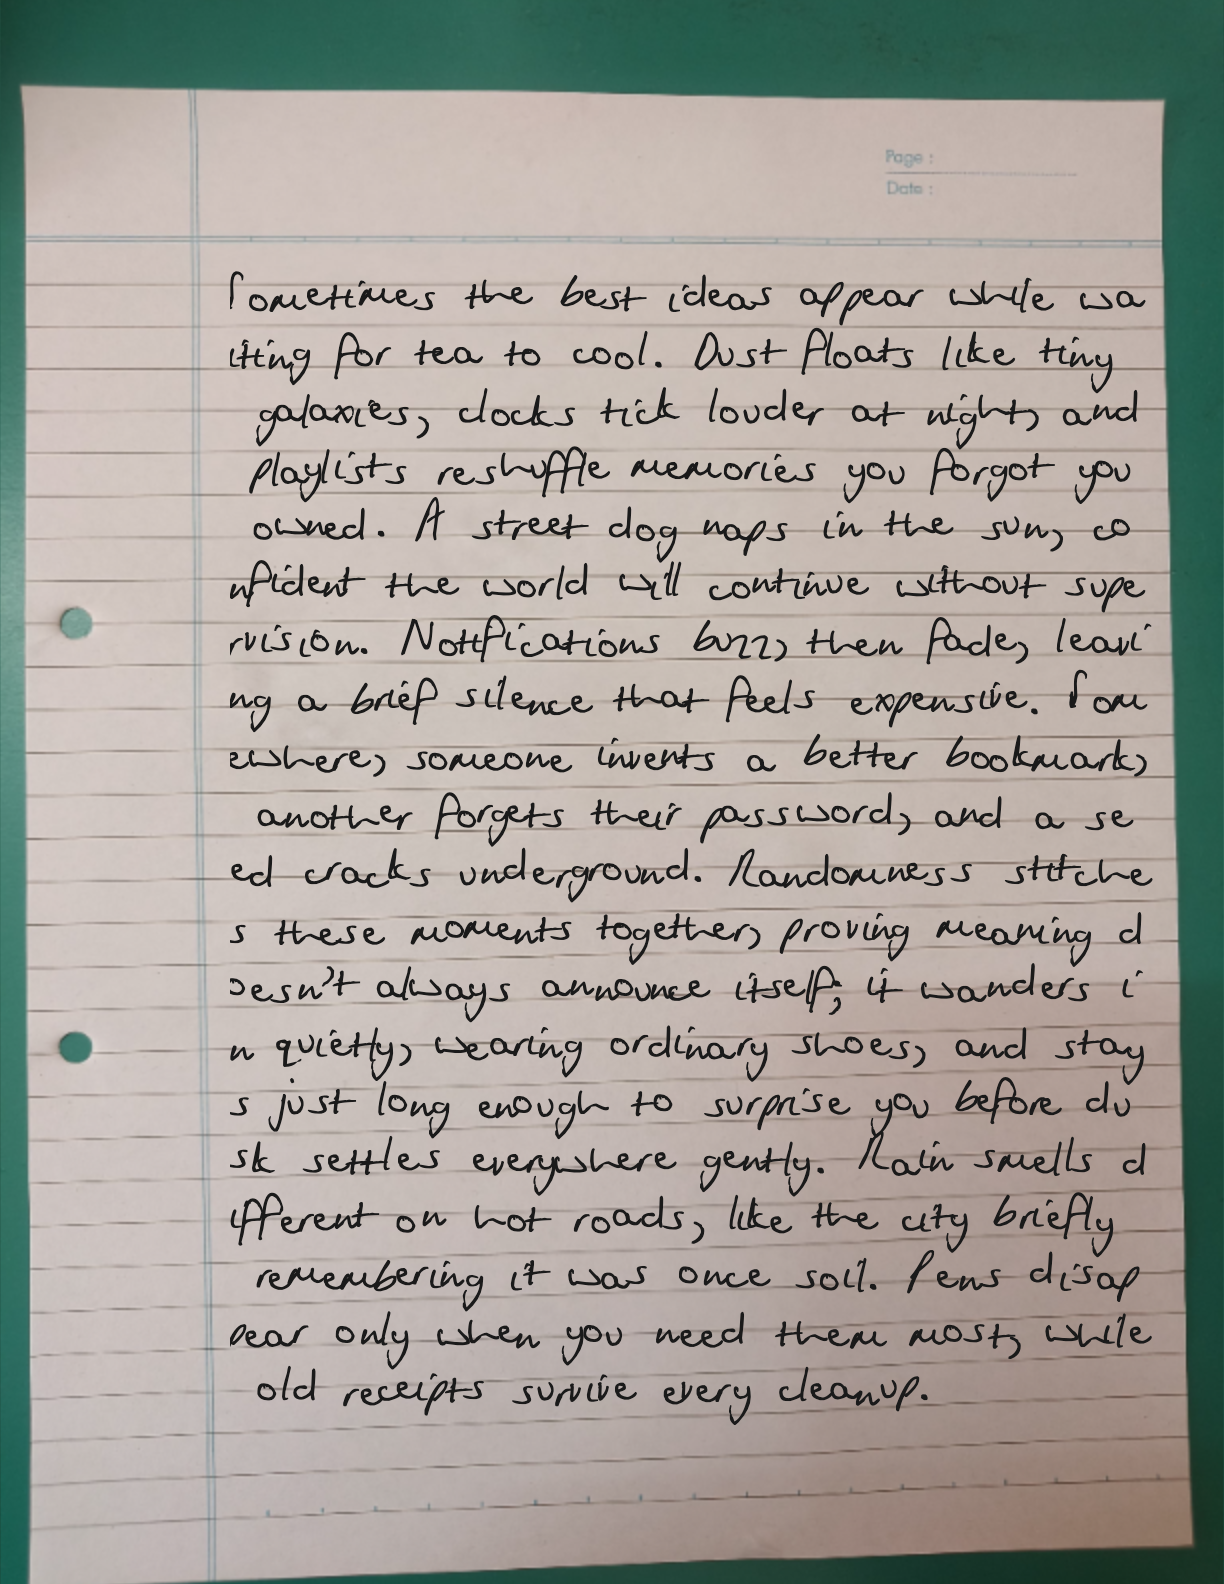 Page :
Date :
Sometimes the best ideas appear while wa
iting for tea to cool. Dust floats like tiny
galaxies, clocks tick louder at night, and
playlists reshuffle memories you forgot you
owned. A street dog naps in the sun, co
nfident the world will continue without supe
rvision. Notifications buzz, then fade, leavi
ng a brief silence that feels expensive. Som
ewhere, someone invents a better bookmark,
another forgets their password, and a se
ed cracks underground. Randomness stitche
s these moments together, proving meaning d
oesn't always announce itself; it wanders i
n quietly, wearing ordinary shoes, and stay
s just long enough to surprise you before du
sk settles everywhere gently. Rain smells d
ifferent on hot roads, like the city briefly
remembering it was once soil. Pens disap
pear only when you need them most, while
old receipts survive every cleanup.